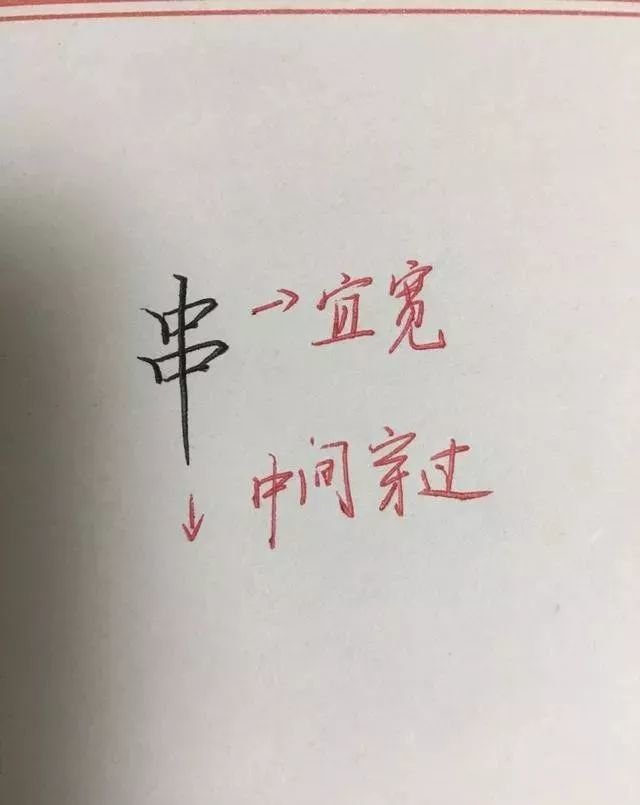 串→宜宽
↓中间穿过